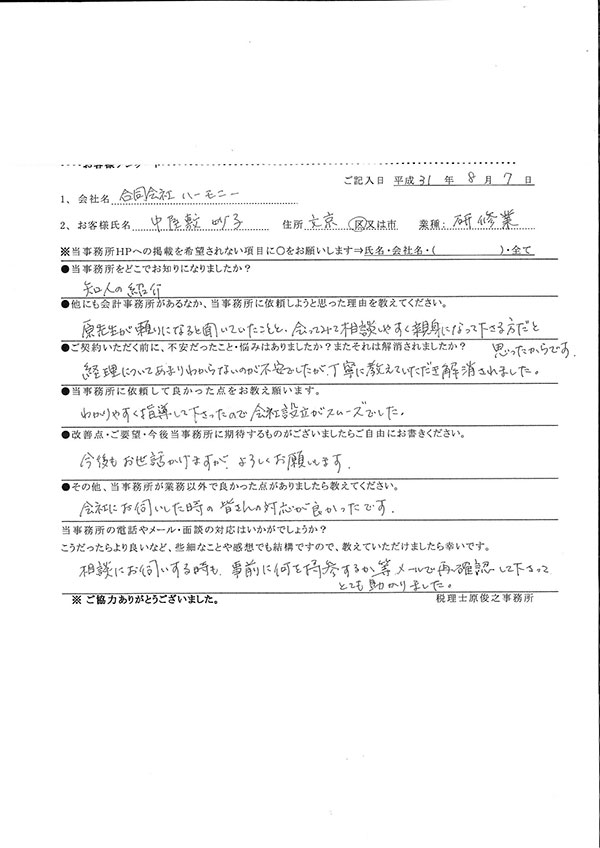 お客様アンケート
ご記入日 平成 31 年 8 月 7 日
1、会社名 合同会社 ハーモニー
2、お客様氏名 中 子 住所 文京 区又は市 業種: 研修業
※当事務所HPへの掲載を希望されない項目に〇をお願いします⇒氏名・会社名・( )・全て
●当事務所をどこでお知りになりましたか?
知人の紹介
●他にも会計事務所があるなか、当事務所に依頼しようと思った理由を教えてください。
原先生が頼りになると聞いていたことと、会ってみて相談しやすく親身になって下さる方だと
思ったからです。
●ご契約いただく前に、不安だったこと・悩みはありましたか?またそれは解消されましたか?
経理についてあまりわからないのが不安でしたが、丁寧に教えていただき解消されました。
●当事務所に依頼して良かった点をお教え願います。
わかりやすく指導して下さったので会社設立がスムーズでした。
●改善点・ご要望・今後当事務所に期待するものがございましたらご自由にお書きください。
今後もお世話かけますが、よろしくお願いします。
●その他、当事務所が業務以外で良かった点がありましたら教えてください。
会社にお伺いした時の皆さんの対応が良かったです。
当事務所の電話やメール・面談の対応はいかがでしょうか?
こうだったらより良いなど、些細なことや感想でも結構ですので、教えていただけましたら幸いです。
相談にお伺いする時も、事前に何を持参するか等メールで再確認して下さって
とても助かりました。
※ ご協力ありがとうございました。 税理士原俊之事務所